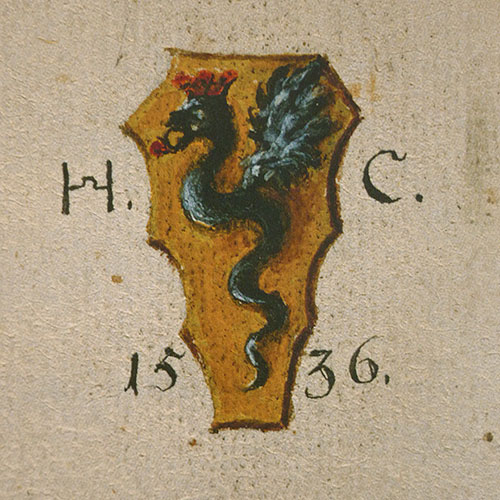 H. C.
1536.